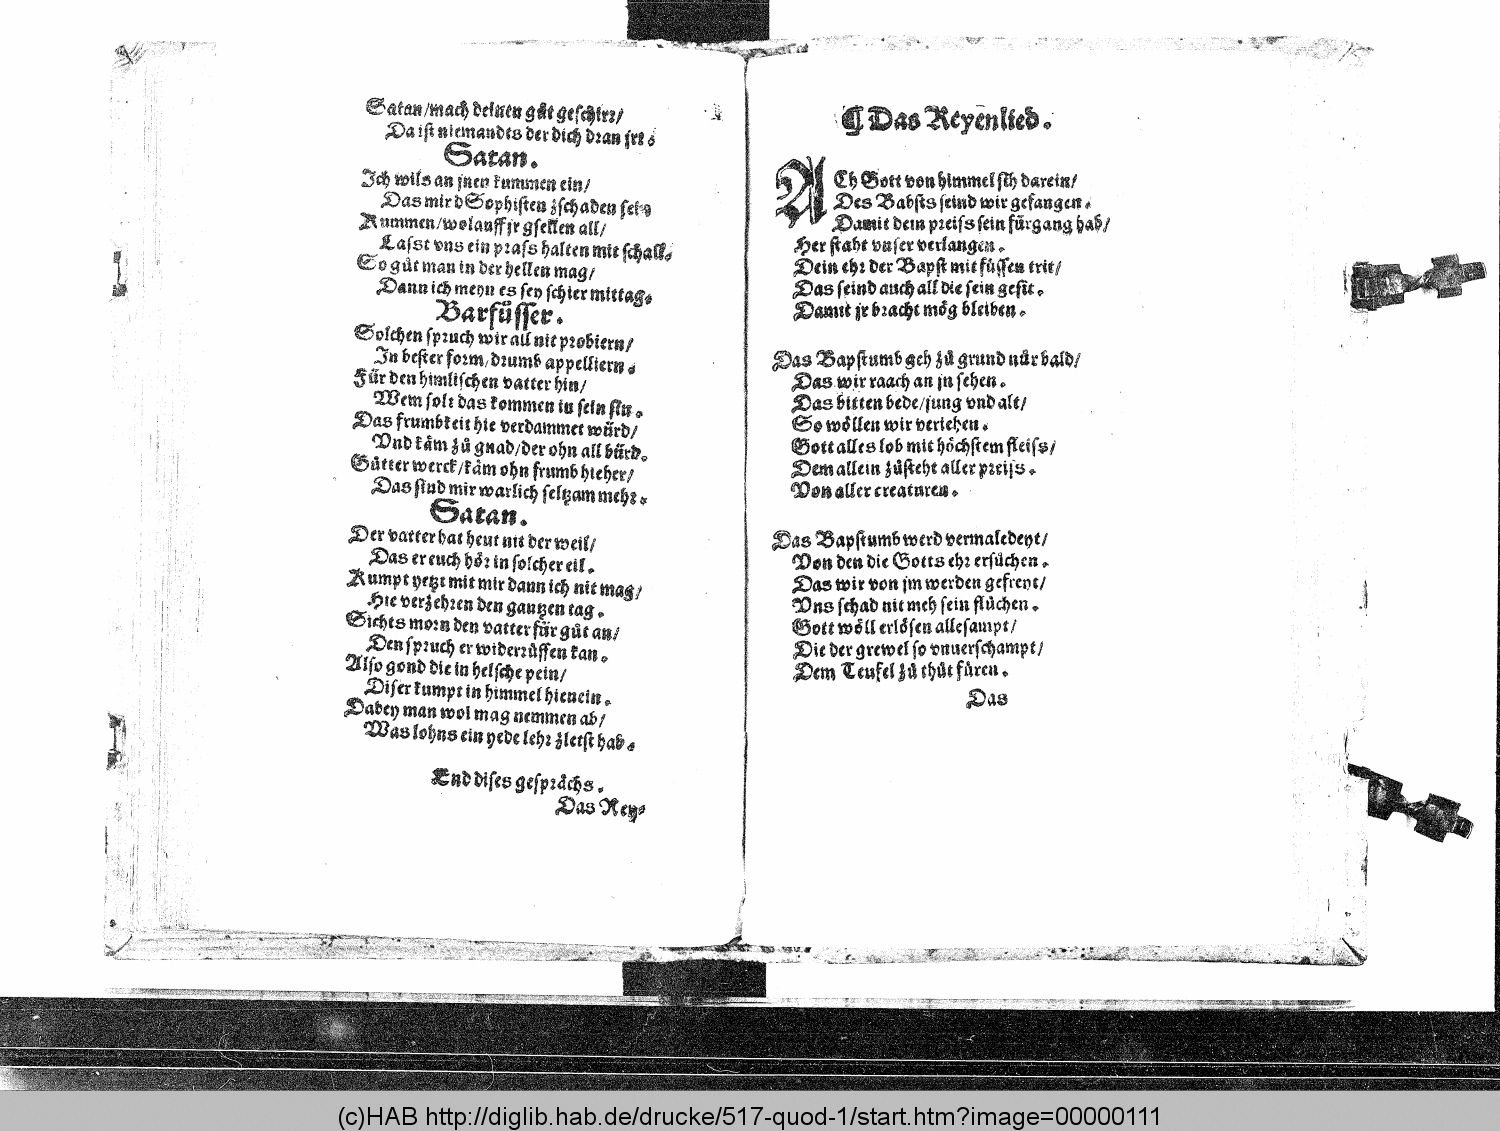 Satan/mach deinen gůt geschirr/
Da ist niemandts der dich dran irr.
Satan.
Ich wils an jnen kummen ein/
Das mir d Sophisten zschaden sein
Kummen/wolauff jr gsellen all/
Lasst vns ein prass halten mit schall.
So gůt man in der hellen mag/
Dann ich meyn es sey schier mittag.
Barfůsser.
Solchen spruch wir all nit probiern/
In bester form/drumb appelliern.
Für den himlischen vatter hin/
Wem solt das kommen in sein sin.
Das frumbkeit hie verdammet würd/
Vnd kåm zů gnad/der ohn all bürd.
Gůtter werck/kåm ohn frumb hieher/
Das sind mir warlich seltzam mehr.
Satan.
Der vatter hat heut nit der weil/
Das er euch hôr in solcher eil.
Kumpt yetzt mit mir dann ich nit mag/
Hie verzehren den gantzen tag.
Sichts morn den vatter für gůt an/
Den spruch er widerrůffen kan.
Also gond die in helsche pein/
Diser kumpt in himmel hienein.
Dabey man wol mag nemmen ab/
Was lohns ein yede lehr zletst hab.
End dises gesprächs.
Das Rey-
¶ Das Reyenlied.
ACh Gott von himmel sih darein/
Des Babsts seind wir gefangen.
Damit dein preiss sein fürgang hab/
Her staht vnser verlangen.
Dein ehr der Bapst mit füssen trit/
Das seind auch all die sein gesit.
Damit jr bracht mög bleiben.
Das Bapstumb geh zů grund nůr bald/
Das wir raach an jn sehen.
Das bitten bede/jung vnd alt/
So wöllen wir veriehen.
Gott alles lob mit höchstem fleiss/
Dem allein zůsteht aller preiss.
Von aller creaturen.
Das Bapstumb werd vermaledeyt/
Von den die Gotts ehr ersůchen.
Das wir von jm werden gefreyt/
Vns schad nit meh sein flůchen.
Gott wöll erlösen allesampt/
Die der grewel so vnuerschampt/
Dem Teufel zů thůt füren.
Das
(c)HAB http://diglib.hab.de/drucke/517-quod-1/start.htm?image=00000111